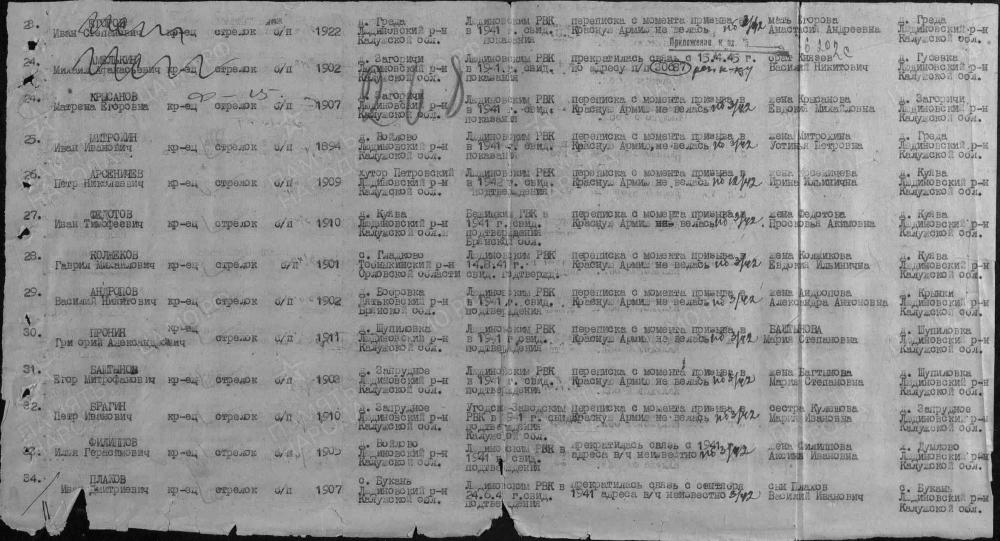 23. ЕГОРОВ
Иван Степанович кр-ец стрелок б/п 1922 д. Греда Людиновский р-н Калужской обл. Людиновским РВК в 1941 г. свид. показания переписка с момента призыва в Красную Армию не велась по 3/42 мать Егорова Анастасия Андреевна д. Греда Людиновский р-н Калужской обл.
Приложение к вх.
Михаил кр-ец стрелок б/п 1902 д. Загоричи Людиновский р-н Калужской обл. Людиновским РВК в 1941 г. свид. показания прекратилась связь с 15.4.43 г. по адресу п/п брат Князев Василий Никитович д. Гусевка Людиновский р-н Калужской обл.
24. КРЫСАНОВ
Матрена Егоровна кр-ец стрелок б/п 1907 д. Загоричи Людиновский р-н Калужской обл. Людиновским РВК в 1941 г. свид. показания переписка с момента призыва в Красную Армию не велась по 3/42 жена Крысанова Евдокия Михайловна д. Загоричи Людиновский р-н Калужской обл.
25. МИТРОХИН
Иван Иванович кр-ец стрелок б/п 1894 д. Войлово Людиновский р-н Калужской обл. Людиновским РВК в 1941 г. свид. показания переписка с момента призыва в Красную Армию не велась по 3/42 жена Митрохина Устинья Петровна д. Греда Людиновский р-н Калужской обл.
26. АРСЕНИЧЕВ
Петр Николаевич кр-ец стрелок б/п 1909 хутор Петровский Людиновский р-н Калужской обл. Людиновским РВК в 1942 г. свид. подтверждения переписка с момента призыва в Красную Армию не велась по 12/42 жена Ирина д. Куява Людиновский р-н Калужской обл.
27. ФЕДОТОВ
Иван Тимофеевич кр-ец стрелок б/п 1910 д. Куява Людиновский р-н Калужской обл. РВК в 1941 г. свид. подтверждения Брянской обл. переписка с момента призыва в Красную Армию не велась по 3/42 жена Федотова Просковья Акимовна д. Куява Людиновский р-н Калужской обл.
28. КОЛМЕКОВ
Гаврил Михайлович кр-ец стрелок б/п 1901 с. Гладково р-н Орловской области Людиновским РВК 14.8.41 г. свид. подтвержд. переписка с момента призыва в Красную Армию не велась по 3/42 жена Евдокия Ильинична д. Куява Людиновский р-н Калужской обл.
29. АНДРОПОВ
Василий Никитович кр-ец стрелок б/п 1902 д. Бобровка Дятьковский р-н Брянской обл. Людиновским РВК в 1941 г. свид. подтверждения переписка с момента призыва в Красную Армию не велась по 3/42 жена Андропова Александра Антоновна д. Крынки Людиновский р-н Калужской обл.
30. ПРОНИН
Григорий Александрович кр-ец стрелок б/п 1911 д. Шупиловка Людиновский р-н Калужской обл. Людиновским РВК в 1941 г. свид. подтверждения переписка с момента призыва в Красную Армию не велась по 3/42 Мария Степановна д. Шупиловка Людиновский р-н Калужской обл.
31. БАХТЫНОВ
Егор Митрофанович кр-ец стрелок б/п 1903 д. Запрудное Людиновский р-н Калужской обл. Людиновским РВК в 1941 г. свид. подтверждения переписка с момента призыва в Красную Армию не велась по 3/42 жена Мария Степановна д. Шупиловка Людиновский р-н Калужской обл.
32. БРАГИН
Петр Иванович кр-ец стрелок б/п 1910 д. Запрудное Людиновский р-н Калужской обл. Угодско-Заводским РВК в 1941 г. свид. подтверждения Калужской обл. Переписка с момента призыва в Красную Армию не велась по 3/42 сестра Мария Ивановна д. Запрудное Людиновский р-н Калужской обл.
33. ФИЛИППОВ
Илья Герасимович кр-ец стрелок б/п 1905 д. Войлово Людиновский р-н Калужской обл. Людиновским РВК в 1941 г. свид. подтверждения прекратилась связь с 1941 адреса в/ч неизвестно по 3/42 жена Филиппова Аксинья Ивановна д. Думлово Людиновский р-н Калужской обл.
34. ПЛАХОВ
Иван Дмитриевич кр-ец стрелок б/п 1907 с. Букань Людиновский р-н Калужской обл. Людиновским РВК в 24.6.4 г. свид. подтверждения прекратилась связь с сентября 1941 адреса в/ч неизвестно 3/42 сын Плахов Василий Иванович с. Букань Людиновский р-н Калужской обл.